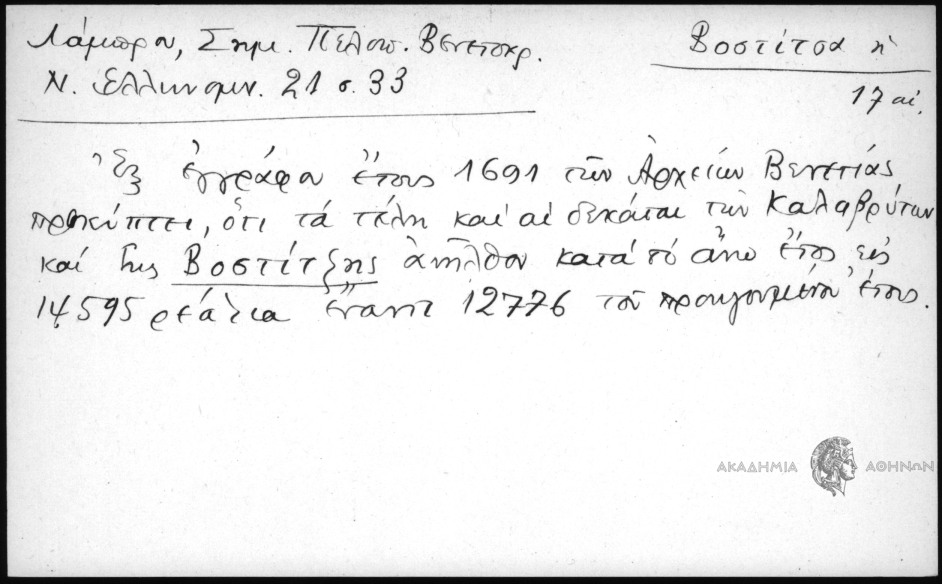 Λάμπρου, Σημ. Πελοπ. Βενετοκρ.
Ν. Ελληνομν. 21 σ. 33
Βοστίτσα ἡ
17 αἰ.
Ἐξ ἐγγράφου ἔτους 1691 τῶν Ἀρχείων Βενετίας
προκύπτει, ὅτι τά τέλη καί αἱ δεκάται τῶν Καλαβρύτων
καί τῆς Βοστίτζης ἀνῆλθον κατά τό ἄνω ἔτος εἰς
14595 ρεάλια ἔναντι 12776 τοῦ προηγουμένου ἔτους.
ΑΚΑΔΗΜΙΑ ΑΘΗΝΩΝ